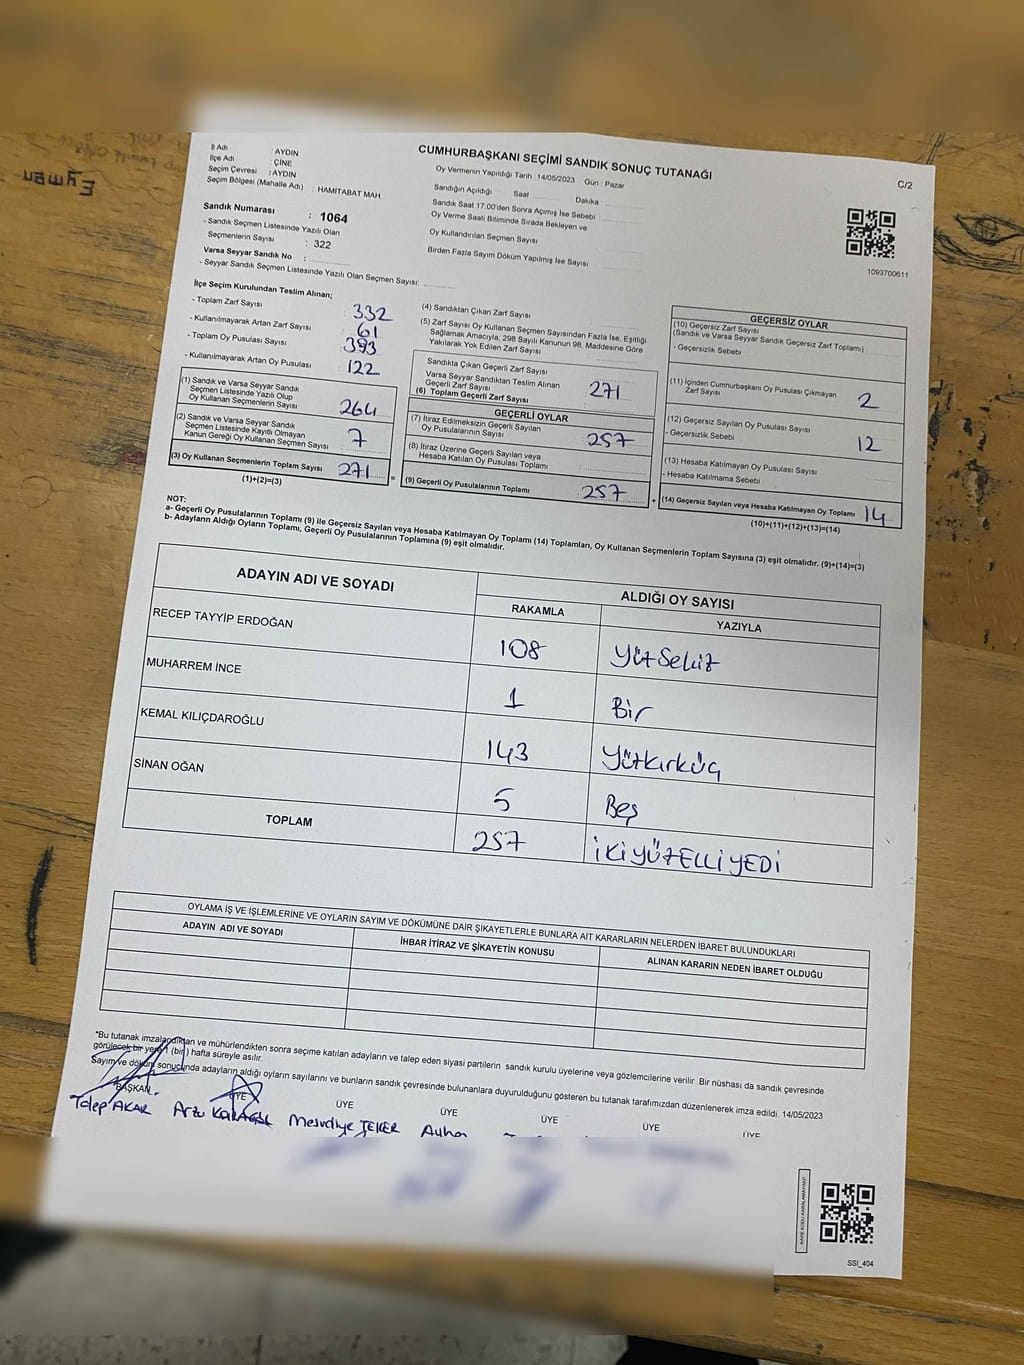 CUMHURBAŞKANI SEÇİMİ SANDIK SONUÇ TUTANAĞI
C/2
İl Adı : AYDIN
İlçe Adı : ÇİNE
Seçim Çevresi : AYDIN
Seçim Bölgesi (Mahalle Adı) : HAMITABAT MAH
Oy Vermenin Yapıldığı Tarih :14/05/2023 Gün : Pazar
Sandığın Açıldığı Saat Dakika
Sandık Saat 17:00'den Sonra Açımış İse Sebebi
Oy Verme Saati Bitiminde Sırada Bekleyen ve
Oy Kullandırılan Seçmen Sayısı
Birden Fazla Sayım Döküm Yapılmış İse Sayısı
1093700611
Sandık Numarası : 1064
- Sandık Seçmen Listesinde Yazılı Olan
Seçmenlerin Sayısı : 322
Varsa Seyyar Sandık No :
- Seyyar Sandık Seçmen Listesinde Yazılı Olan Seçmen Sayısı:
İlçe Seçim Kurulundan Teslim Alınan;
- Toplam Zarf Sayısı 332
- Kullanılmayarak Artan Zarf Sayısı 61
- Toplam Oy Pusulası Sayısı 393
- Kullanılmayarak Artan Oy Pusulası 122
(1) Sandık ve Varsa Seyyar Sandık
Seçmen Listesinde Yazılı Olup
Oy Kullanan Seçmenlerin Sayısı 264
(2) Sandık ve Varsa Seyyar Sandık
Seçmen Listesinde Kayıtlı Olmayan
Kanun Gereği Oy Kullanan Seçmen Sayısı 7
(3) Oy Kullanan Seçmenlerin Toplam Sayısı 271
(1)+(2)=(3)
=
(4) Sandıktan Çıkan Zarf Sayısı
(5) Zarf Sayısı Oy Kullanan Seçmen Sayısından Fazla İse, Eşitliği
Sağlamak Amacıyla; 298 Sayılı Kanunun 98. Maddesine Göre
Yakılarak Yok Edilen Zarf Sayısı
Sandıkta Çıkan Geçerli Zarf Sayısı
Varsa Seyyar Sandıktan Teslim Alınan
Geçerli Zarf Sayısı
(6) Toplam Geçerli Zarf Sayısı 271
GEÇERLİ OYLAR
(7) İtiraz Edilmeksizin Geçerli Sayılan
Oy Pusulalarının Sayısı 257
(8) İtiraz Üzerine Geçerli Sayılan veya
Hesaba Katılan Oy Pusulası Toplamı
(9) Geçerli Oy Pusulalarının Toplamı 257
+
GEÇERSİZ OYLAR
(10) Geçersiz Zarf Sayısı
(Sandık ve Varsa Seyyar Sandık Geçersiz Zarf Toplamı)
- Geçersizlik Sebebi :
(11) İçinden Cumhurbaşkanı Oy Pusulası Çıkmayan
Zarf Sayısı 2
(12) Geçersiz Sayılan Oy Pusulası Sayısı
- Geçersizlik Sebebi 12
(13) Hesaba Katılmayan Oy Pusulası Sayısı
- Hesaba Katılmama Sebebi :
(14) Geçersiz Sayılan veya Hesaba Katılmayan Oy Toplamı 14
(10)+(11)+(12)+(13)=(14)
NOT:
a- Geçerli Oy Pusulalarının Toplamı (9) ile Geçersiz Sayılan veya Hesaba Katılmayan Oy Toplamı (14) Toplamları, Oy Kullanan Seçmenlerin Toplam Sayısına (3) eşit olmalıdır. (9)+(14)=(3)
b- Adayların Aldığı Oyların Toplamı, Geçerli Oy Pusulalarının Toplamına (9) eşit olmalıdır.
ADAYIN ADI VE SOYADI
ALDIĞI OY SAYISI
RAKAMLA YAZIYLA
RECEP TAYYİP ERDOĞAN 108 YüzSekiz
MUHARREM İNCE 1 Bir
KEMAL KILIÇDAROĞLU 143 Yüzkırküç
SİNAN OĞAN 5 Beş
TOPLAM 257 İKİYÜZELLİYEDİ
OYLAMA İŞ VE İŞLEMLERİNE VE OYLARIN SAYIM VE DÖKÜMÜNE DAİR ŞİKAYETLERLE BUNLARA AİT KARARLARIN NELERDEN İBARET BULUNDUKLARI
ADAYIN ADI VE SOYADI İHBAR İTİRAZ VE ŞİKAYETİN KONUSU ALINAN KARARIN NEDEN İBARET OLDUĞU
*Bu tutanak imzalandıktan ve mühürlendikten sonra seçime katılan adayların ve talep eden siyasi partilerin sandık kurulu üyelerine veya gözlemcilerine verilir. Bir nüshası da sandık çevresinde
görülecek bir yere 1 (bir) hafta süreyle asılır.
Sayım ve döküm sonucunda adayların aldığı oyların sayılarını ve bunların sandık çevresinde bulunanlara duyurulduğunu gösteren bu tutanak tarafımızdan düzenlenerek imza edildi. 14/05/2023
BAŞKAN ÜYE ÜYE ÜYE ÜYE ÜYE ÜYE
Talep AKAR Arzu Mesudiye
KARE KODU KARALAMAYINIZ!
SSI_404